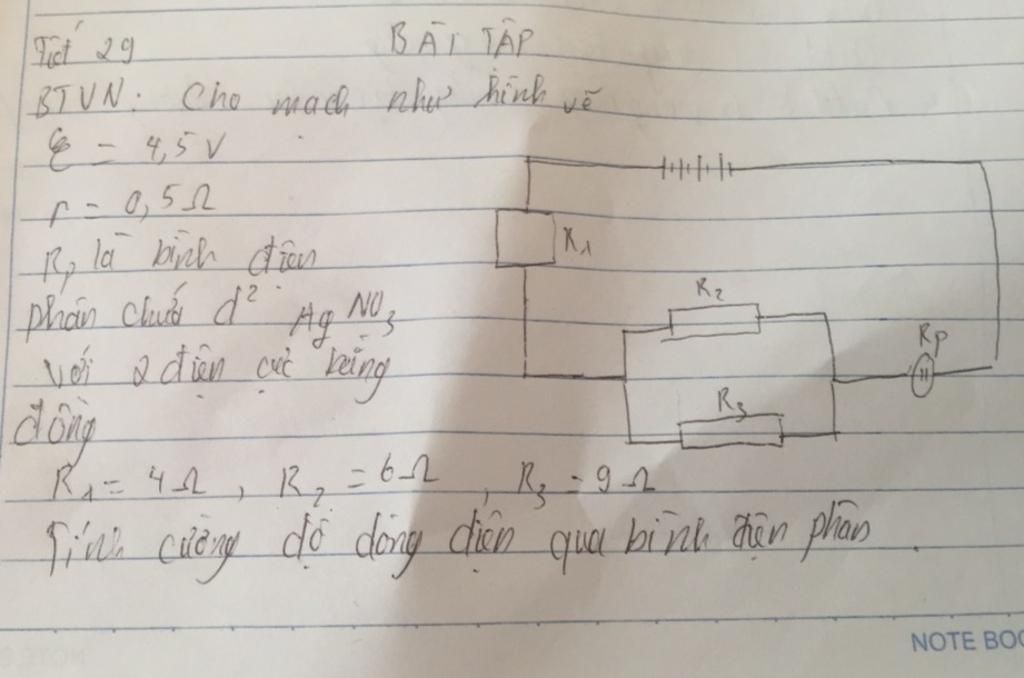 Tiết 29
BÀI TẬP
BTVN: Cho mạch như hình vẽ
ℰ = 4,5 V
r = 0,5 Ω
Rp là bình điện
phân chứa d² AgNO3
với 2 điện cực bằng
đồng
R1
R2
R3
Rp
R1 = 4 Ω, R2 = 6 Ω, R3 = 9 Ω
Tính cường độ dòng điện qua bình điện phân.
NOTE BOO